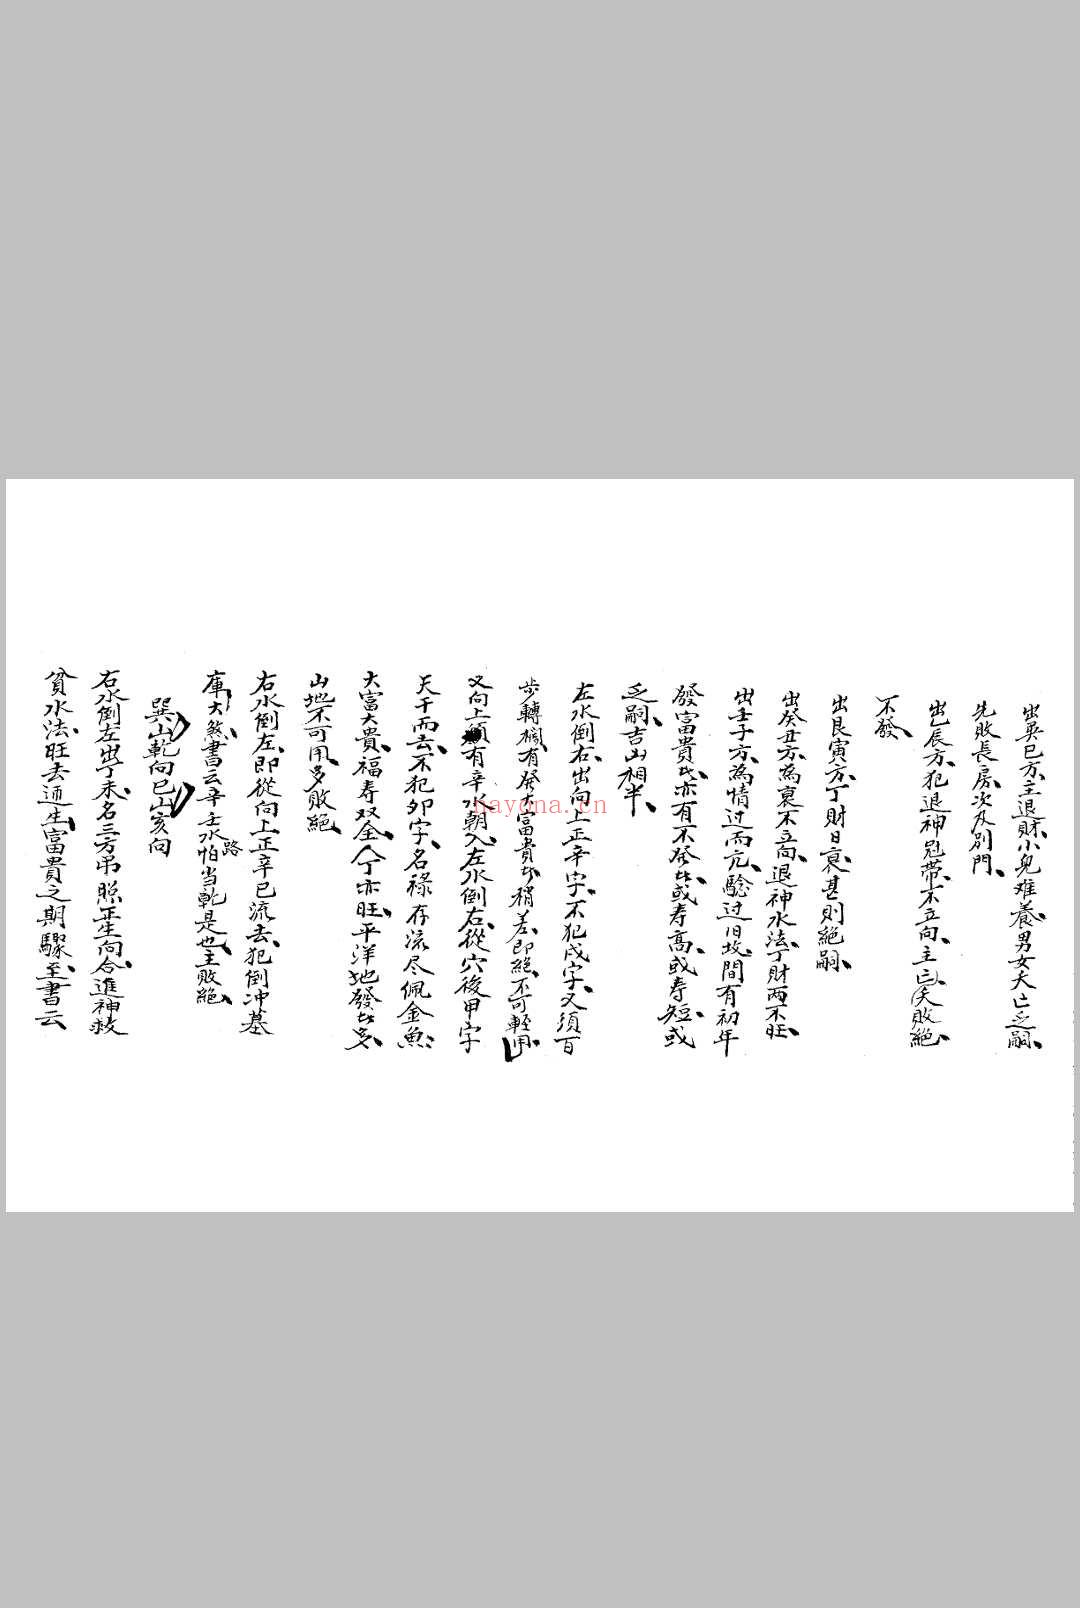 出巽巳方、主退財、小兒难養、男女夭亡乏嗣、
先敗長房、次及別門、
出乙辰方、犯退神冠帶、不立向、主亡夭敗絕、
不發、
出艮寅方、丁財日衰、甚則絕嗣、
出癸丑方、為衰不立向、退神水法、丁財両不旺、
出壬子方、為情过而亢、驗过旧坟、間有初年
發富貴者、亦有不發者、或寿高、或寿短、或
乏嗣、吉凶相半、
左水倒右、出向上正辛字、不犯戌字、又須百
步轉欄、有發大富貴者、稍差、即絕、不可輕用、
又向上有辛水朝入、左水倒右、從穴後甲字
天干而去、不犯卯字、名祿存流尽佩金魚、
大富大貴、福寿双全、人丁亦旺、平洋地發者多、
山地不可用、多敗絕、
右水倒左、即從向上正辛巳流去、犯倒冲墓
庫大煞、書云辛壬水路怕当乾是也、主敗絕、
巽山乾向巳山亥向
右水倒左出丁未、名三方吊照正生向、合進神救
貧水法、旺去迎生、富貴之期驟至、書云
nayona.cn